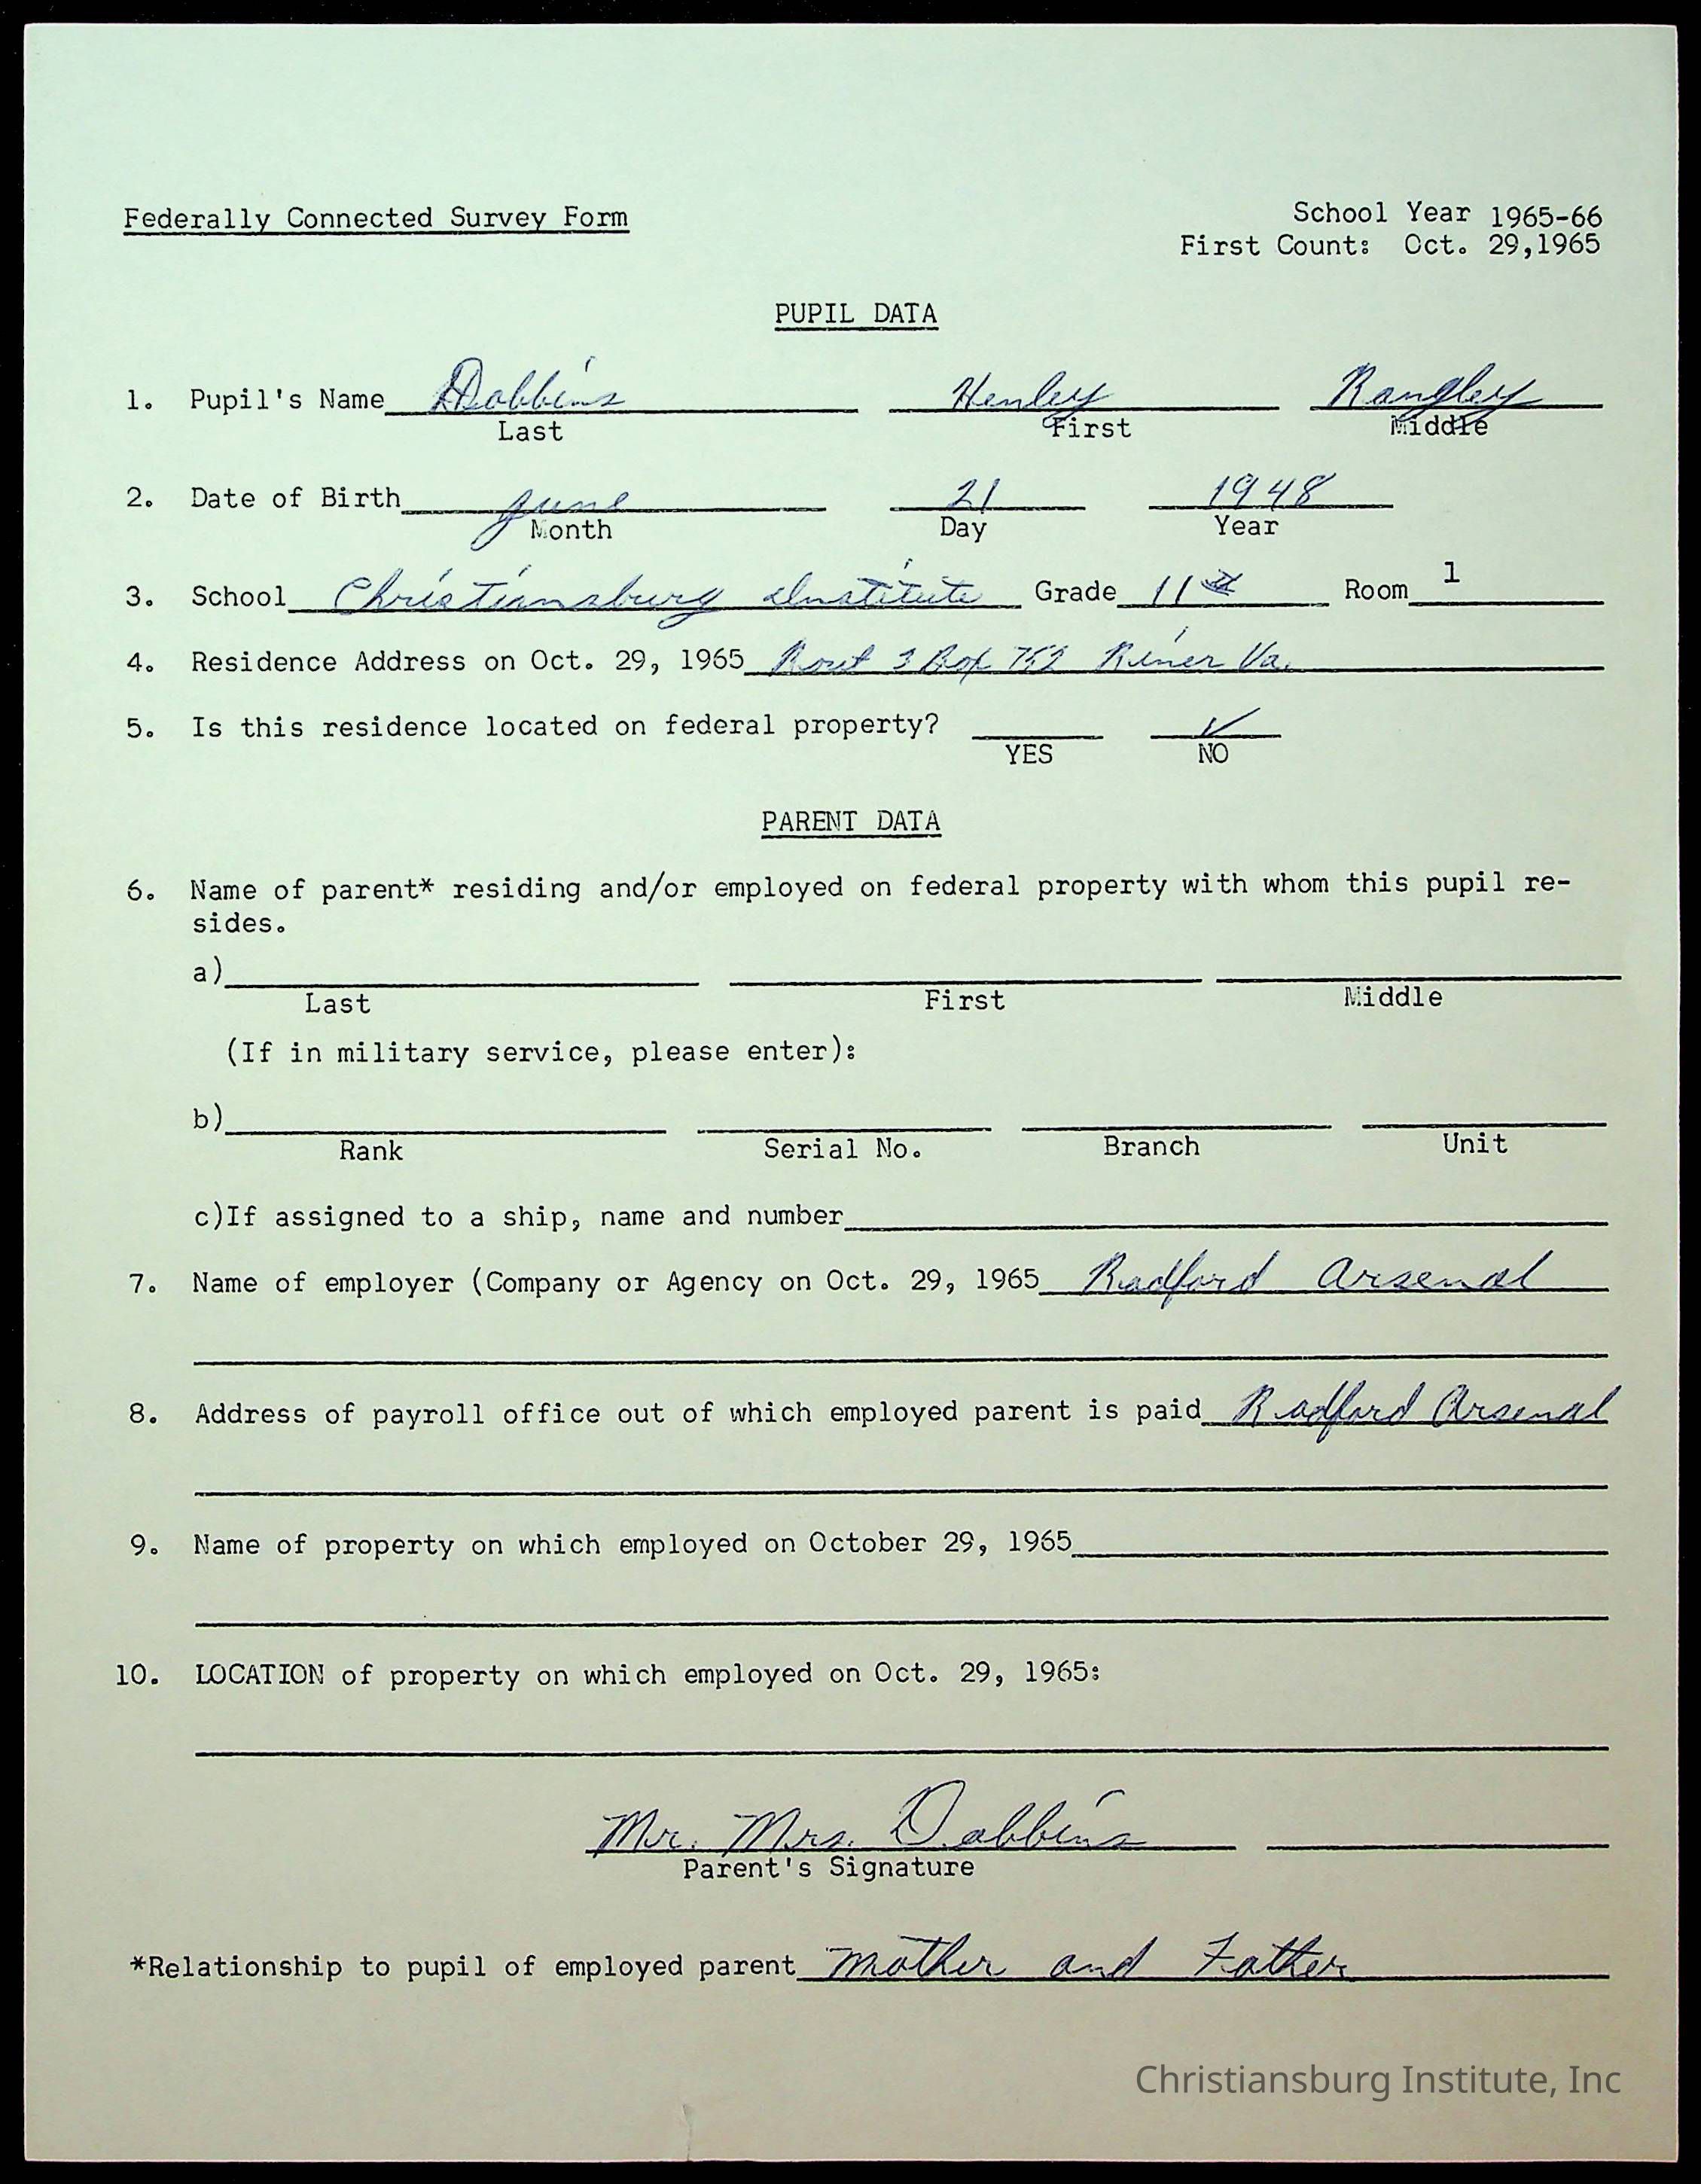 Federally Connected Survey Form
School Year 1965-66
First Count: Oct. 29,1965
PUPIL DATA
1. Pupil's Name Dobbins Henley Rangley
Last First Middle
2. Date of Birth June 21 1948
Month Day Year
3. School Christiansburg Institute Grade 11 Room 1
4. Residence Address on Oct. 29, 1965 Rout 3 Box Riner Va.
5. Is this residence located on federal property? ✓
YES NO
PARENT DATA
6. Name of parent* residing and/or employed on federal property with whom this pupil re-
sides.
a)
Last First Middle
(If in military service, please enter):
b)
Rank Serial No. Branch Unit
c)If assigned to a ship, name and number
7. Name of employer (Company or Agency on Oct. 29, 1965 Radford Arsenal
8. Address of payroll office out of which employed parent is paid Radford Arsenal
9. Name of property on which employed on October 29, 1965
10. LOCATION of property on which employed on Oct. 29, 1965:
Mr. Mrs. Dobbins
Parent's Signature
*Relationship to pupil of employed parent Mother and Father
Christiansburg Institute, Inc